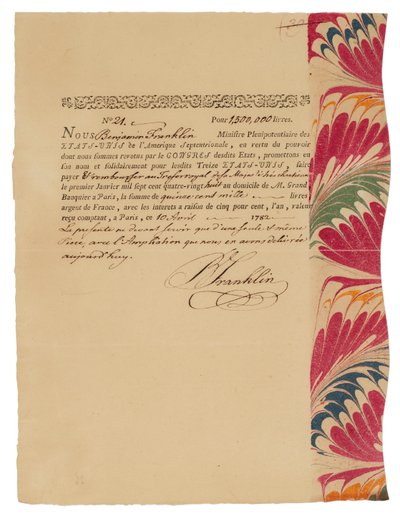 No. 21. Pour 1,500,000 livres.
NOUS Benjamin Franklin Ministre Plenipotentiaire des
ETATS-UNIS de l'Amerique Septentrionale, en vertu du pouvoir
dont nous sommes revetus par le CONGRES desdits Etats, promettons en
son nom et solidairement pour lesdits Treize ETATS-UNIS, faire
payer & rembourser au Tresor royal de sa Majesté très chretienne
le premier Janvier mil sept cent quatre-vingt huit au domicile de M. Grand
Banquier a Paris, la somme de quinze cens mille livres
argent de France, avec les interets a raison de cinq pour cent, l'an, valeur
reçu comptant, a Paris, ce 10 Avril 1782
La presente ne devant servir que d'une seule & même
Piece, avec l'Ampliation que nous en avons delivrée
aujourd'huy.
B Franklin